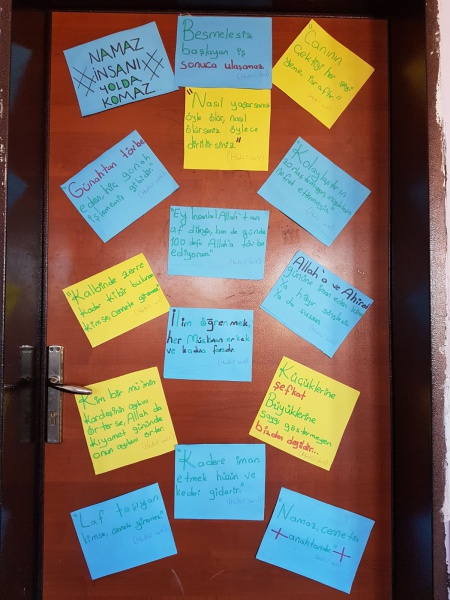 NAMAZ
İNSANI
YOLDA
KOMAZ
Besmelesiz
başlayan iş
sonuca ulaşamaz
(Hadis-i şerif)
"Canının
Çektiği her şeyi
yemek, israftır."
"Nasıl yaşarsanız
öyle ölür, nasıl
ölürseniz öylece
dirilirsiniz."
(Hadis-i şerif)
"Günahtan tövbe
eden, hiç günah
işlememiş gibidir."
"Kolaylaştırın
zorlaştırmayın, müjdeleyin
nefret ettirmeyin"
"Ey İnsanlar! Allah'tan
af dileyin, ben de günde
100 defa Allah'a tövbe
ediyorum."
"Kalbinde zerre
kadar kibir bulunan
kimse, cennete giremez"
Allah'a ve Ahiret
gününe iman eden kimse
Ya hayır söylesin
Ya da sussun
İlim öğrenmek,
her Müslüman erkek
ve kadına farzdır.
"Kim bir mü'min
kardeşinin ayıbını
örterse, Allah da
kıyamet gününde
onun ayıbını örter.
Küçüklerine
şefkat
Büyüklerine
saygı göstermeyen
bizden değildir...
"Kadere iman
etmek hüzün ve
kederi giderir."
"Laf taşıyan
kimse, cennete giremez"
"Namaz, cennetin
anahtarıdır."